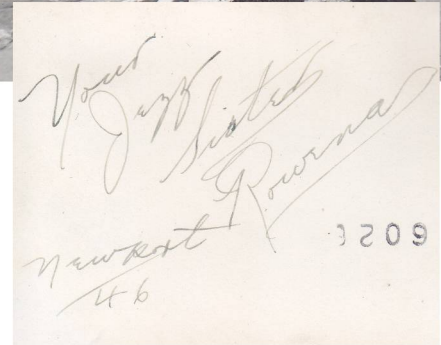 Your
Jazz
Sister
Rowena
Newport
46
6209